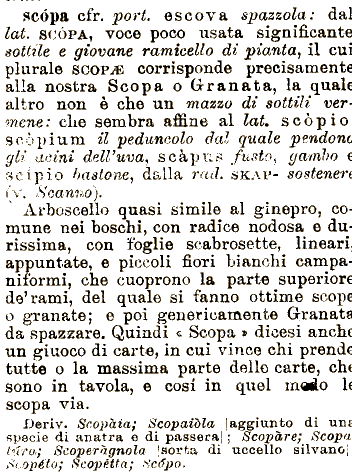 scópa cfr. port. escova spazzola: dal
lat. SCÓPA, voce poco usata significante
sottile e giovane ramicello di pianta, il cui
plurale SCOPÆ corrisponde precisamente
alla nostra Scopa o Granata, la quale
altro non è che un mazzo di sottili ver-
mene: che sembra affine al lat. scòpio
scòpium il peduncolo dal quale pendono
gli acini dell'uva, scàpus fusto, gambo e
scípio bastone, dalla rad. SKAP- sostenere
(v. Scanno).
Arboscello quasi simile al ginepro, co-
mune nei boschi, con radice nodosa e du-
rissima, con foglie scabrosette, lineari,
appuntate, e piccoli fiori bianchi campa-
niformi, che cuoprono la parte superiore
de'rami, del quale si fanno ottime scope
o granate; e poi genericamente Granata
da spazzare. Quindi « Scopa » dicesi anche
un giuoco di carte, in cui vince chi prende
tutte o la massima parte delle carte, che
sono in tavola, e cosí in quel modo le
scopa via.
Deriv. Scopàia; Scopaiòla |aggiunto di una
specie di anatra e di passera|; Scopàre; Scopa
Scoperàgnola |sorta di uccello silvano|
Scopéto; Scopétta; Scópo.